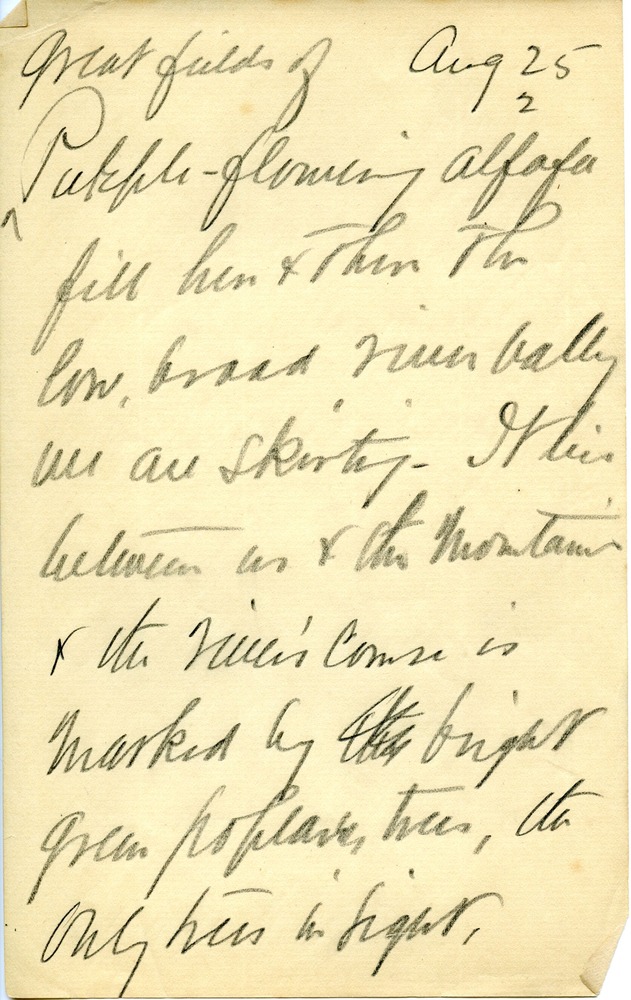 Great fields of Aug 25
2
Purple-flowering alfafa
fill here & there the
low, broad river valley
we are skirting - It lies
between us & the Mountains
& the river's course is
marked by the bright
green poplar trees, the
only trees in sight,